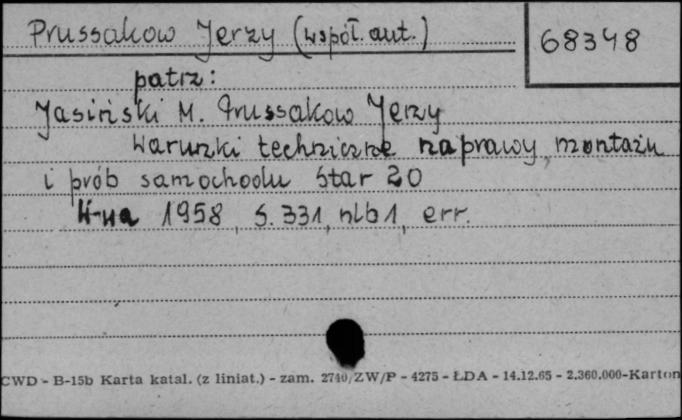 Prussakow Jerzy (współ. aut.)
68348
patrz:
Jasiński M. Prussakow Jerzy
Warunki techniczne naprawy, montażu
i prób samochodu Star 20
W-wa 1958, s. 331, nlb 1, err.
CWD - B-15b Karta katal. (z liniat.) - zam. 2740/ZW/P - 4275 - ŁDA - 14.12.65 - 2.360.000-Karton